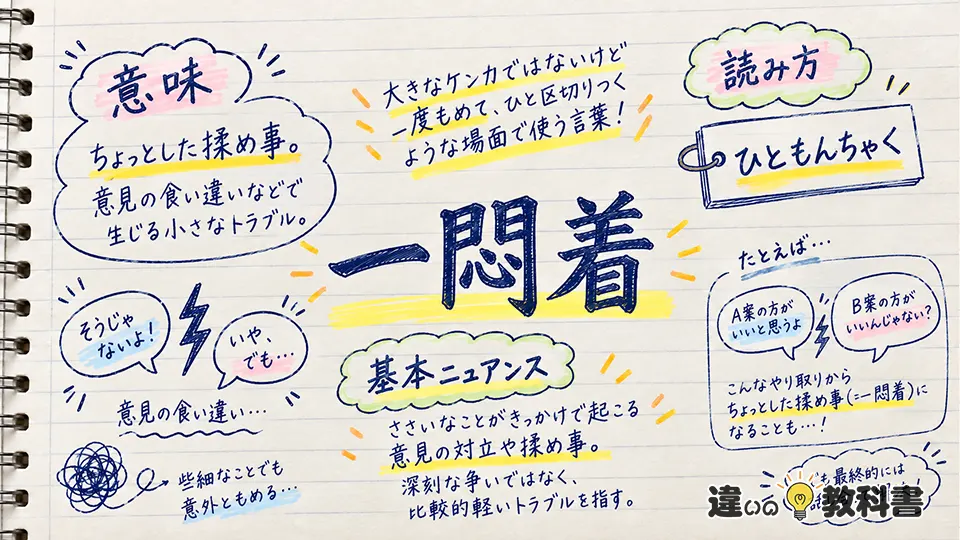 意味
ちょっとした揉め事。
意見の食い違いなどで
生じる小さなトラブル。
大きなケンカではないけど
一度もめて、ひと区切りつく
ような場面で使う言葉！
読み方
ひともんちゃく
一悶着
そうじゃ
ないよ！
いや、
でも…
意見の食い違い…
些細なことでも
意外ともめる…
基本ニュアンス
ささいなことがきっかけで起こる
意見の対立や揉め事。
深刻な争いではなく、
比較的軽いトラブルを指す。
たとえば…
A案の方が
いいと思うよ
B案の方が
いいんじゃない？
こんなやり取りから
ちょっとした揉め事(=一悶着)に
なることも…！
も最終的には
違いの教科書